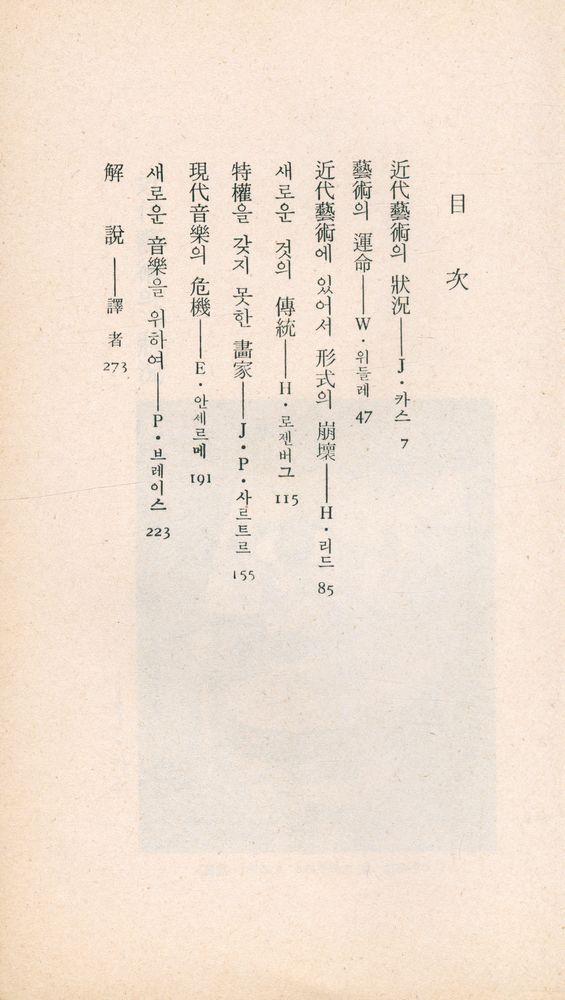 目次
近代藝術의 狀況──J·카스 7
藝術의 運命──W·위들레 47
近代藝術에 있어서 形式의 崩壞──H·리드 85
새로운 것의 傳統──H·로젠버그 115
特權을 갖지 못한 畵家──J·P·사르트르 155
現代音樂의 危機──E·안세르메 191
새로운 音樂을 위하여──P·브레이스 223
解說──譯者 273